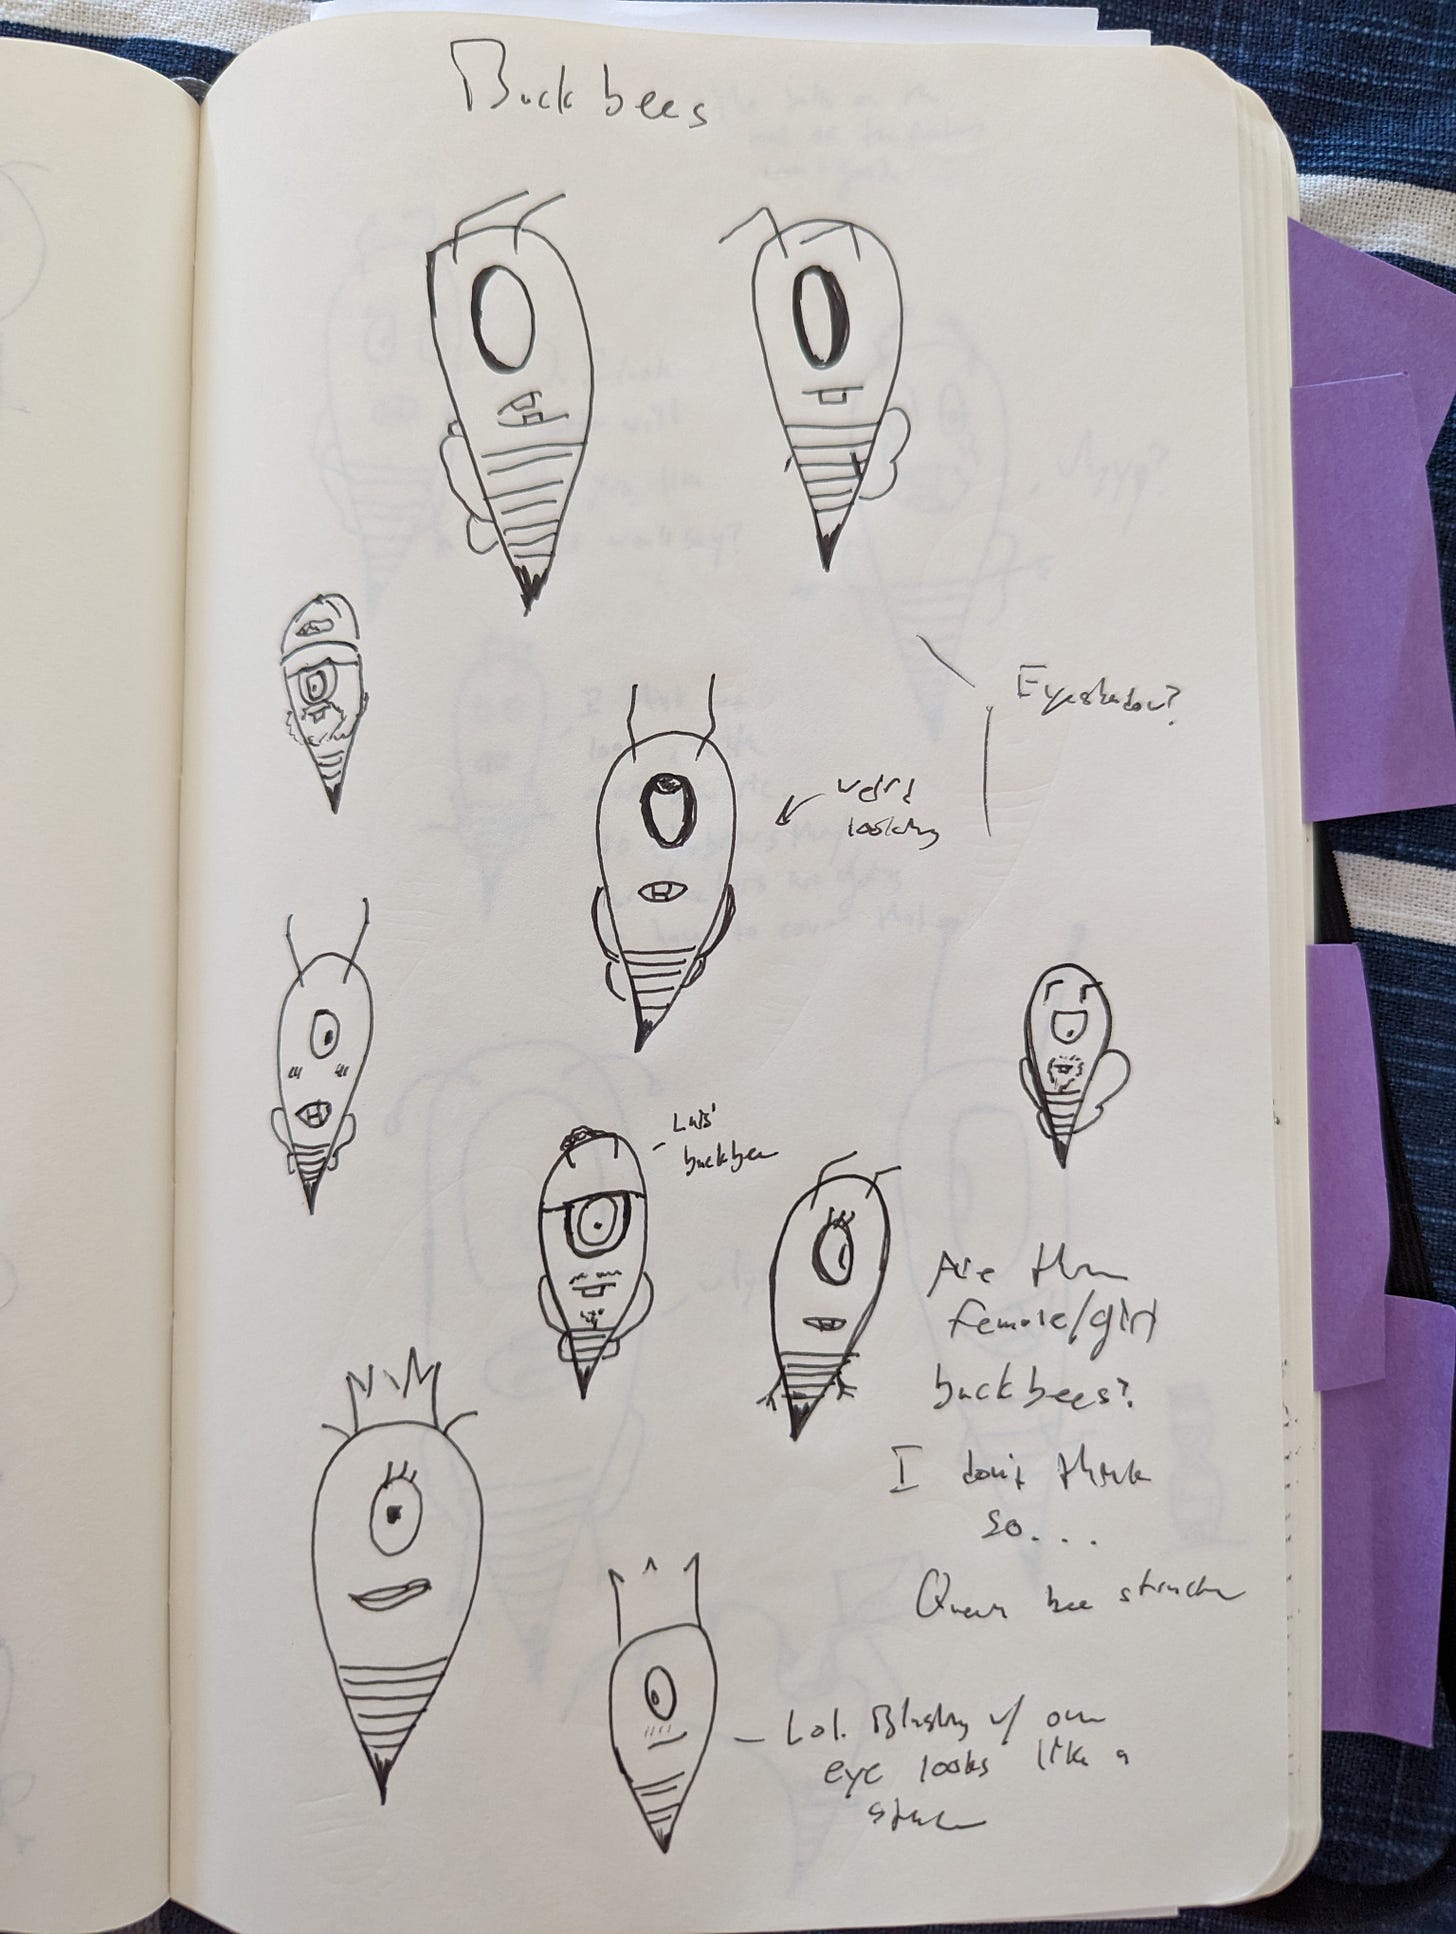 Buck bees
Eyeshadow?
weird
looking
Luis'
buckbee
Are there
female/girl
buckbees?
I don't think
so...
Queen bee structure
Lol. Blushing w/ one
eye looks like a